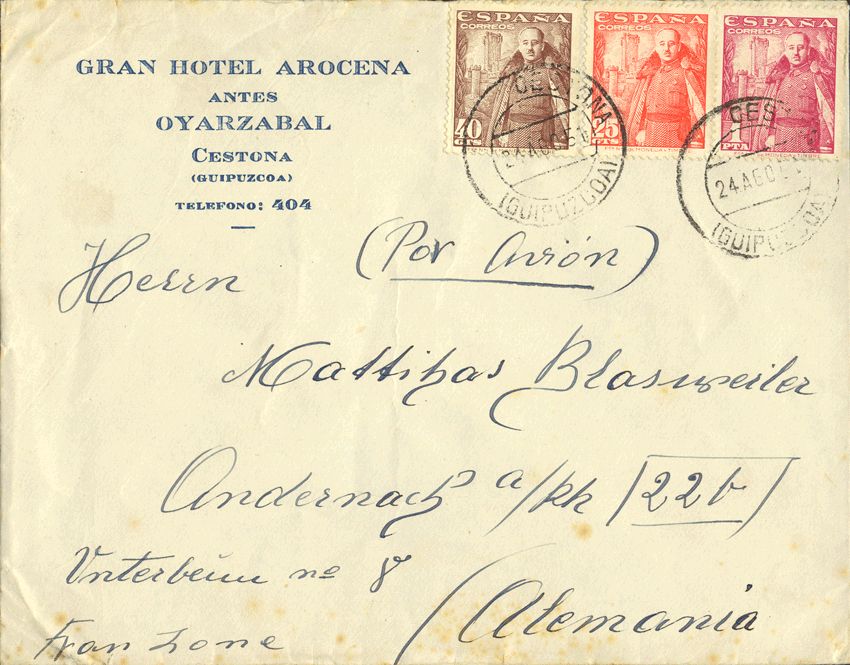 GRAN HOTEL AROCENA
ANTES
OYARZABAL
CESTONA
(GUIPUZCOA)
TELEFONO: 404
ESPAÑA
CORREOS
40 CTS
ESPAÑA
CORREOS
25 CTS
ESPAÑA
CORREOS
PTA
CESTONA
24 AGO 51
(GUIPUZCOA)
CES
24 AGO 5
(GUIPUZCOA)
(Por Avión)
Herrn
Mattihas Blasweiler
Andernach a/Rh /22b/
Unterbeim nº 8
(Alemania
Fran Zone